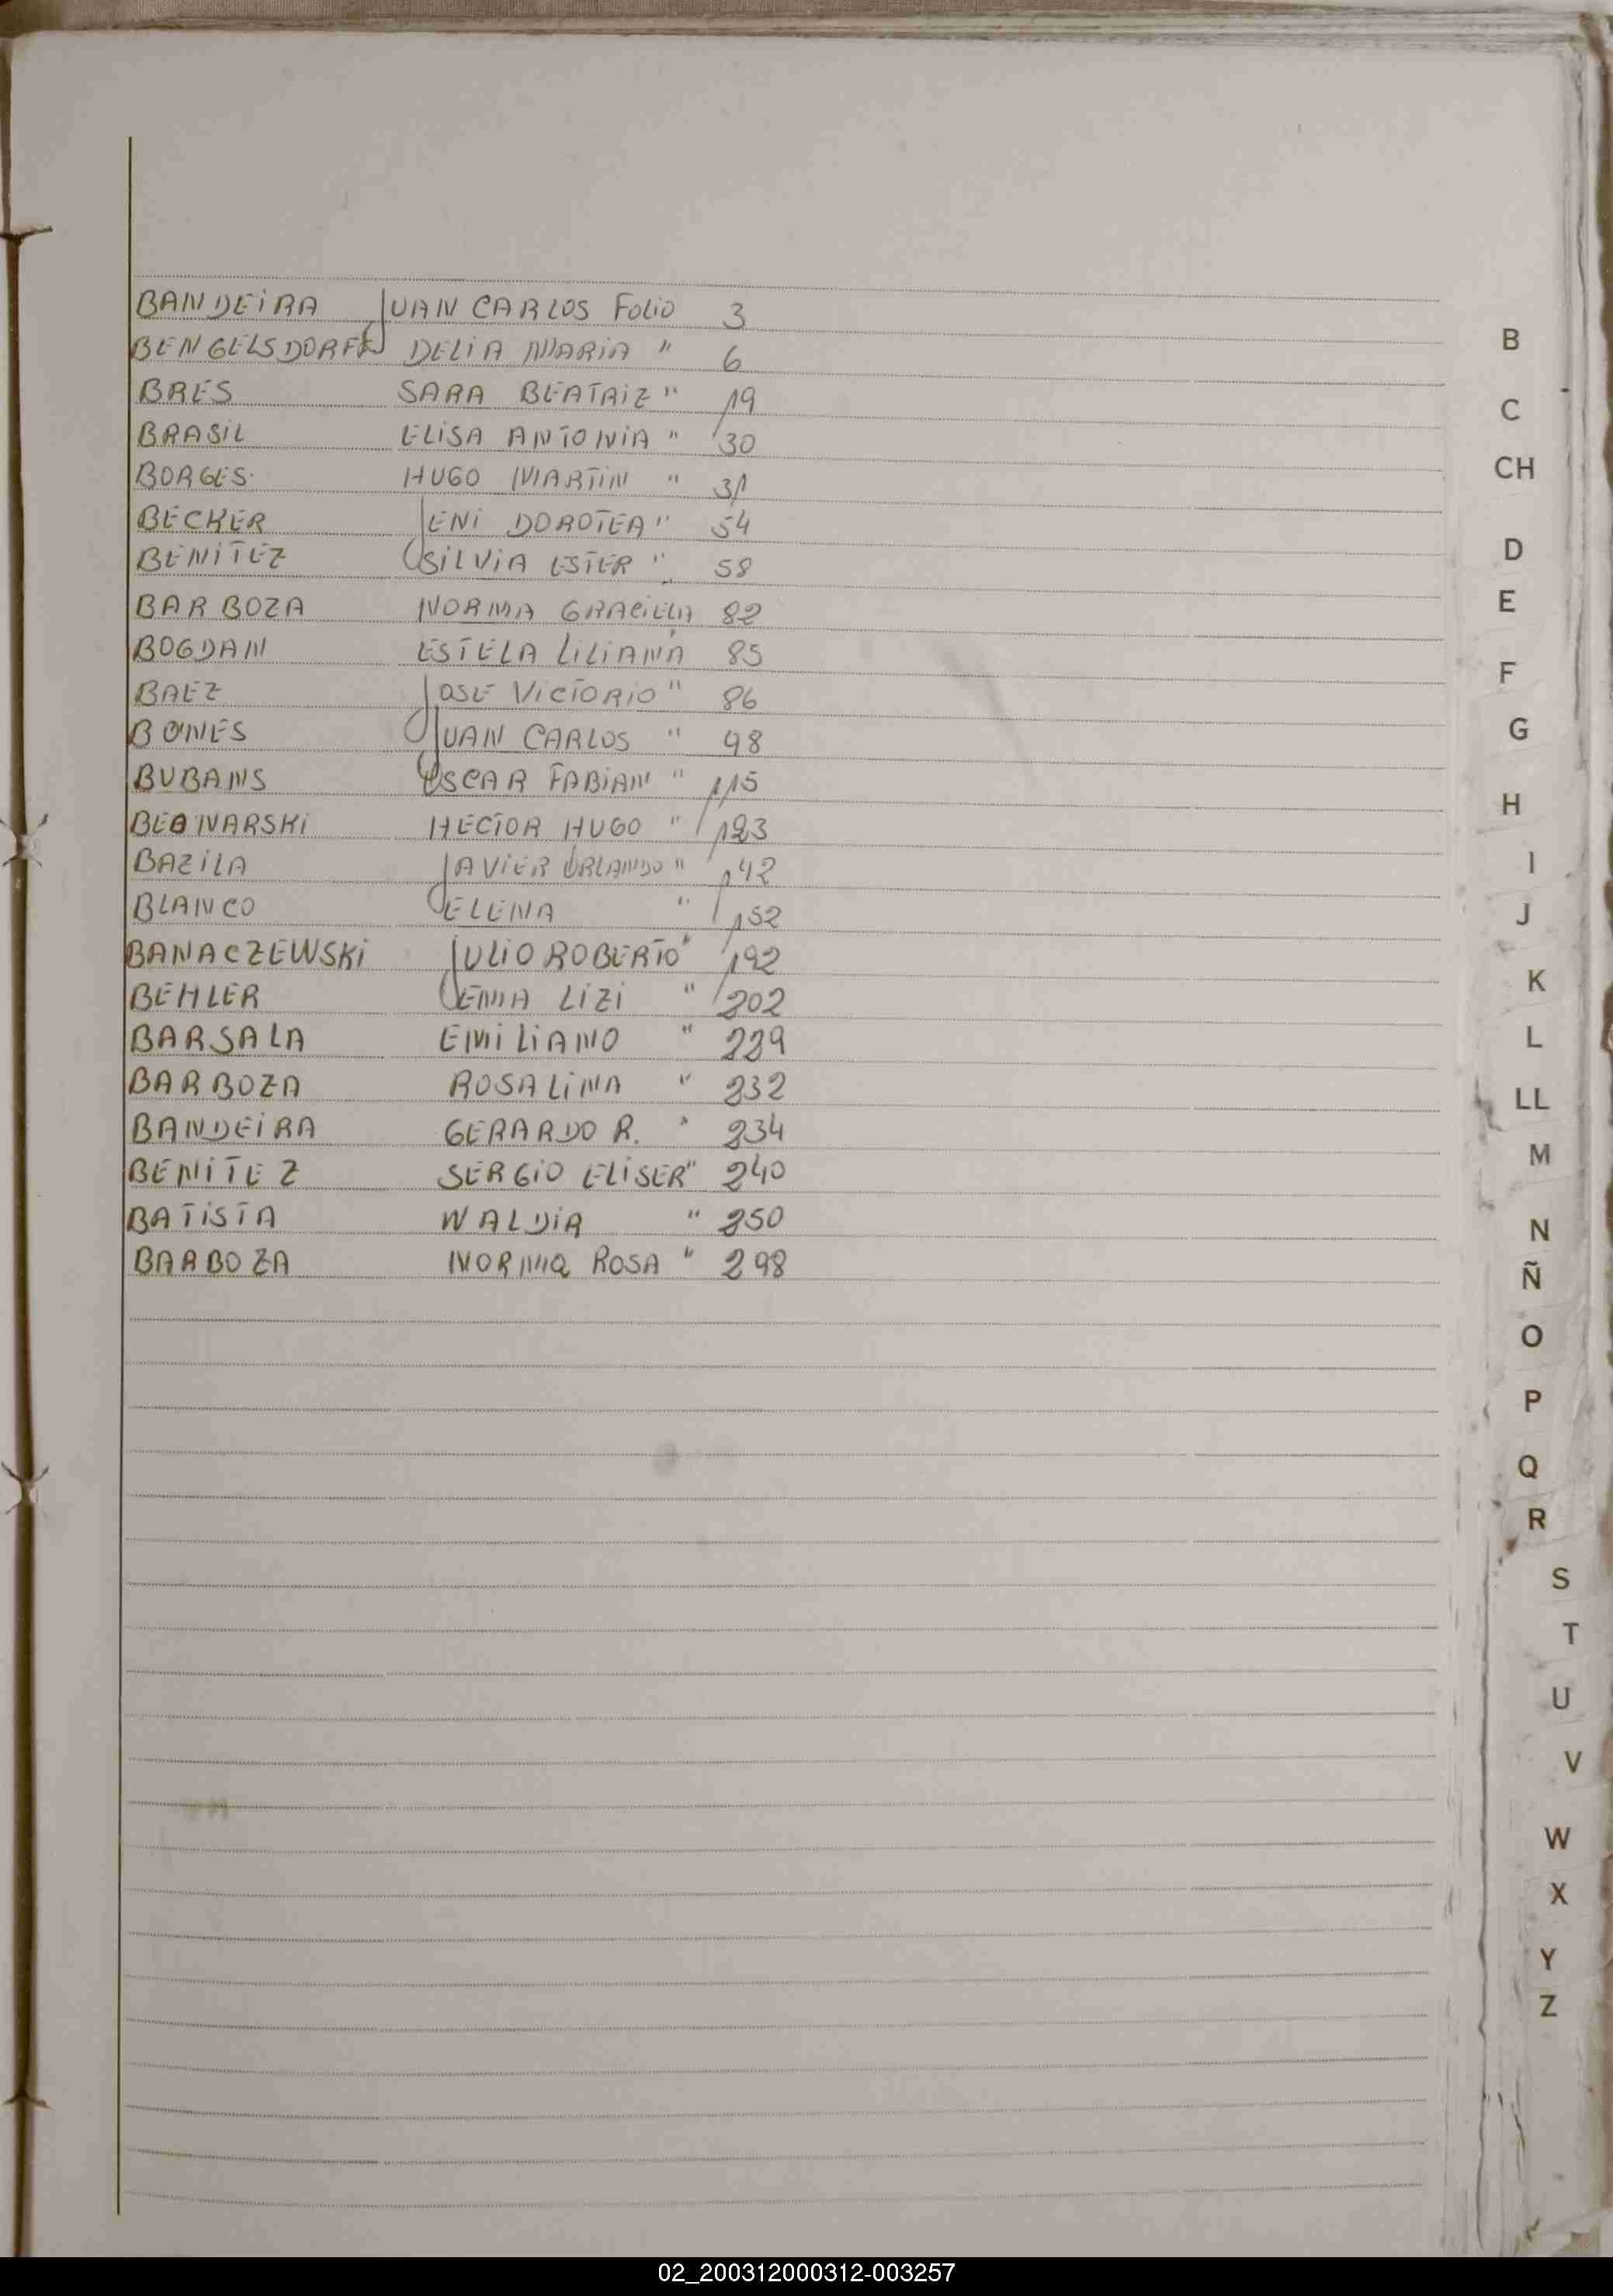 BANDEIRA JUAN CARLOS FOLIO 3
BENGELSDORFF DELIA MARIA " 6
BRES SARA BEATRIZ " 19
BRASIL ELISA ANTONIA " 30
BORGES HUGO MARTIN " 31
BECKER JENI DOROTEA " 54
BENITEZ SILVIA ESTER " 58
BARBOZA NORMA GRACIELA 82
BOGDAN ESTELA LILIANA 85
BAEZ JOSE VICTORIO " 86
BONES JUAN CARLOS " 98
BUBANS OSCAR FABIAN " 115
BEDNARSKI HECTOR HUGO " 123
BAZILA JAVIER ORLANDO " 142
BLANCO ELENA " 152
BANACZEWSKI JULIO ROBERTO " 192
BEHLER EMA LIZI " 202
BARSALA EMILIANO " 229
BARBOZA ROSALINA " 232
BANDEIRA GERARDO R. " 234
BENITEZ SERGIO ELISER " 240
BATISTA WALDIR " 250
BARBOZA NORMA ROSA " 298
B
C
CH
D
E
F
G
H
I
J
K
L
LL
M
N
Ñ
O
P
Q
R
S
T
U
V
W
X
Y
Z
02_200312000312-003257